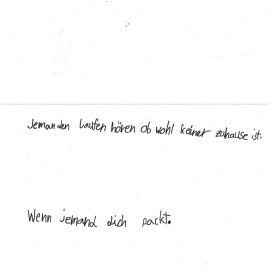 Jemanden laufen hören ob wohl keiner zuhause ist.
Wenn jemand dich packt.